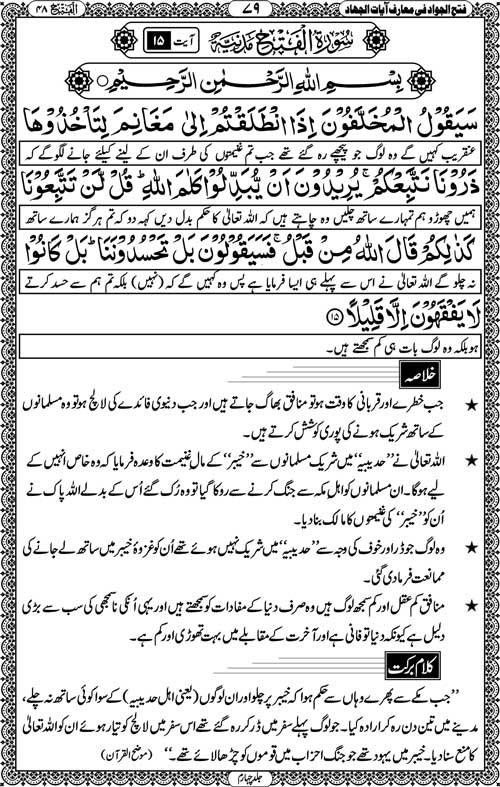 فتح الجواد فی معارف آیات الجهاد ۷۹ اَلْفَتْح ۴۸
سُوْرَةُ الْفَتْحِ مَدَنِيَّةٌ آیت ۱۵
بِسْمِ اللّٰهِ الرَّحْمٰنِ الرَّحِيْمِ
سَيَقُوْلُ الْمُخَلَّفُوْنَ اِذَا انْطَلَقْتُمْ اِلٰى مَغَانِمَ لِتَاْخُذُوْهَا
عنقریب کہیں گے وہ لوگ جو پیچھے رہ گئے تھے جب تم غنیمتوں کی طرف ان کے لینے کیلئے جانے لگو گے کہ
ذَرُوْنَا نَتَّبِعْكُمْ ۚ يُرِيْدُوْنَ اَنْ يُّبَدِّلُوْا كَلٰمَ اللّٰهِ ؕ قُلْ لَّنْ تَتَّبِعُوْنَا
ہمیں چھوڑو ہم تمہارے ساتھ چلیں وہ چاہتے ہیں کہ اللہ تعالیٰ کا حکم بدل دیں کہہ دو کہ تم ہرگز ہمارے ساتھ
كَذٰلِكُمْ قَالَ اللّٰهُ مِنْ قَبْلُ ۚ فَسَيَقُوْلُوْنَ بَلْ تَحْسُدُوْنَنَا ؕ بَلْ كَانُوْا
نہ چلو گے اللہ تعالیٰ نے اس سے پہلے ہی ایسا فرمایا ہے پس وہ کہیں گے کہ (نہیں) بلکہ تم ہم سے حسد کرتے
لَا يَفْقَهُوْنَ اِلَّا قَلِيْلًا ۱۵
ہو بلکہ وہ لوگ بات ہی کم سمجھتے ہیں۔
خلاصہ
★ جب خطرے اور قربانی کا وقت ہو تو منافق بھاگ جاتے ہیں اور جب دنیوی فائدے کی لالچ ہو تو وہ مسلمانوں
کے ساتھ شریک ہونے کی پوری کوشش کرتے ہیں۔
★ اللہ تعالیٰ نے ”حدیبیہ“ میں شریک مسلمانوں سے ”خیبر“ کے مال غنیمت کا وعدہ فرمایا کہ وہ خاص انہیں کے
لیے ہوگا۔ ان مسلمانوں کو اہل مکہ سے جنگ کرنے سے روکا گیا تو وہ رُک گئے اُس کے بدلے اللہ پاک نے
اُن کو ”خیبر“ کی غنیمتوں کا مالک بنا دیا۔
★ وہ لوگ جو ڈر اور خوف کی وجہ سے ”حدیبیہ“ میں شریک نہیں ہوئے تھے اُن کو غزوۂ خیبر میں ساتھ لے جانے کی
ممانعت فرما دی گئی۔
★ منافق کم عقل اور کم سمجھ لوگ ہیں وہ صرف دنیا کے مفادات کو سمجھتے ہیں اور یہی اُنکی ناسمجھی کی سب سے بڑی
دلیل ہے کیونکہ دنیا تو فانی ہے اور آخرت کے مقابلے میں بہت تھوڑی اور کم ہے۔
کلام برکت
”جب مکے سے پھرے وہاں سے حکم ہوا کہ خیبر پر چلو اور ان لوگوں (یعنی اہل حدیبیہ) کے سوا کوئی ساتھ نہ چلے،
مدینے میں تین دن رہ کر ارادہ کیا۔ جو لوگ پہلے سفر میں ڈر کر رہ گئے تھے اس سفر میں لالچ کو تیار ہوئے ان کو اللہ تعالیٰ
کا منع سنا دیا۔ خیبر میں یہود تھے جو جنگ احزاب میں قوموں کو چڑھا لائے تھے۔“ (موضح القرآن)
جلد چہارم